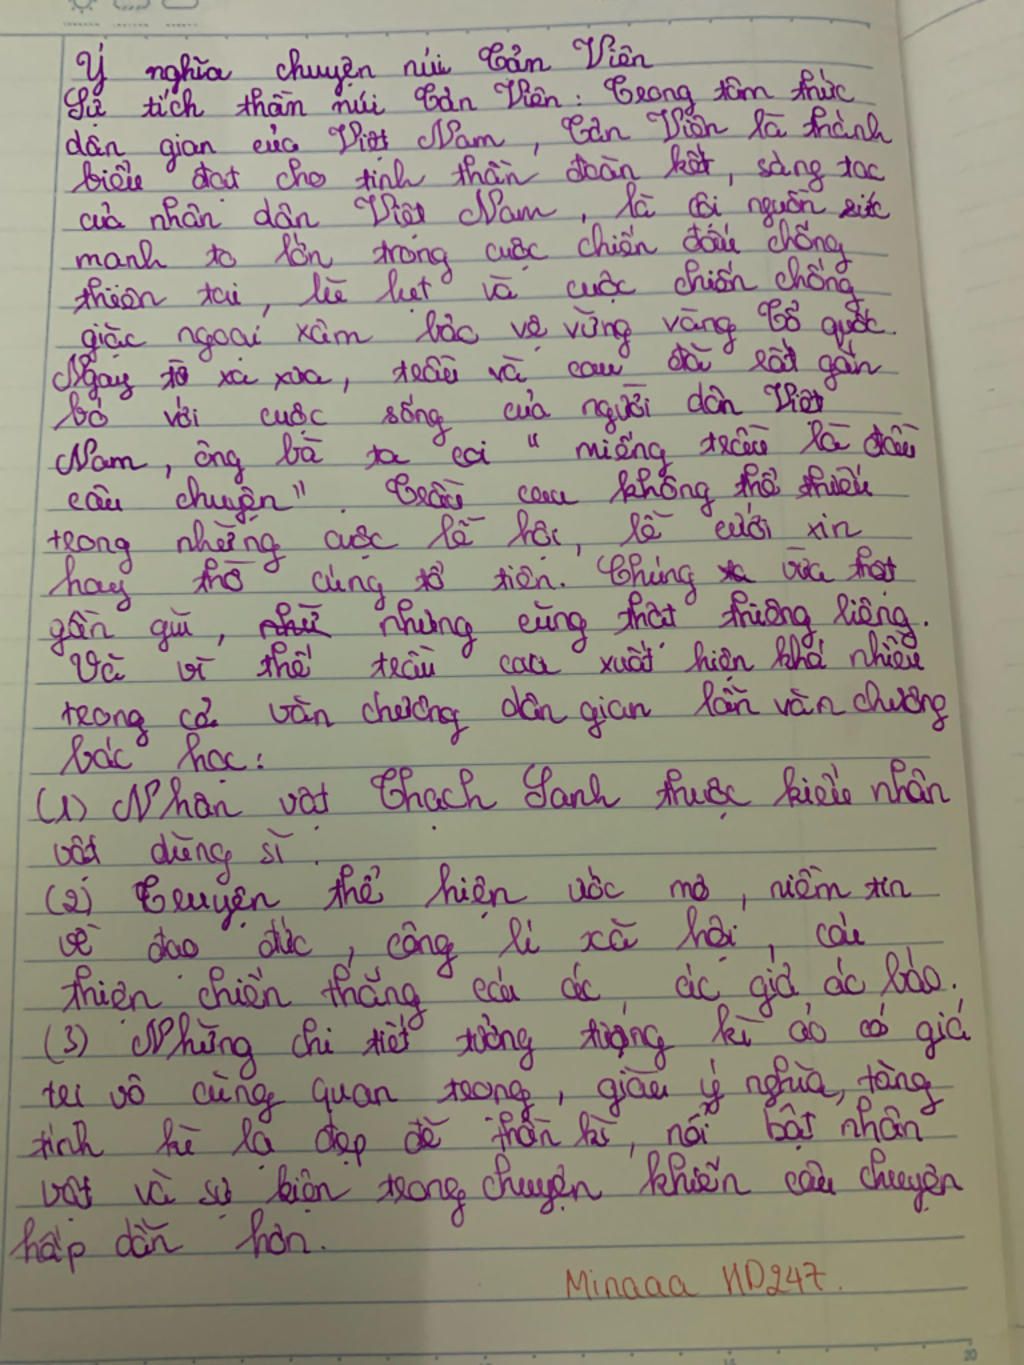 Ý nghĩa chuyện núi Tản Viên
Sự tích thần núi Tản Viên: Trong tâm thức
dân gian của Việt Nam, Tản Viên là thành
biểu đạt cho tinh thần đoàn kết, sáng tạo
của nhân dân Việt Nam, là cội nguồn sức
mạnh to lớn trong cuộc chiến đấu chống
thiên tai, lũ lụt và cuộc chiến chống
giặc ngoại xâm bảo vệ vững vàng Tổ quốc.
Ngay từ xa xưa, trầu và cau đã rất gắn
bó với cuộc sống của người dân Việt
Nam, ông bà ta coi "miếng trầu là đầu
câu chuyện". Trầu cau không thể thiếu
trong những cuộc lễ hội, lễ cưới xin
hay thờ cúng tổ tiên. Chúng ta vừa thật
gần gũi, nhưng cũng thật thiêng liêng.
Và vì thế trầu cau xuất hiện khá nhiều
trong cả văn chương dân gian lẫn văn chương
bác học:
(1) Nhân vật Thạch Sanh thuộc kiểu nhân
vật dũng sĩ.
(2) Truyện thể hiện ước mơ, niềm tin
về đạo đức, công lí xã hội, cái
thiện chiến thắng cái ác, ác giả ác báo.
(3) Những chi tiết tưởng tượng kì ảo có giá
trị vô cùng quan trọng, giàu ý nghĩa, tăng
tính kì lạ đẹp đẽ thần kì, nổi bật nhân
vật và sự kiện trong chuyện khiến câu chuyện
hấp dẫn hơn.
Minaaa HD247.